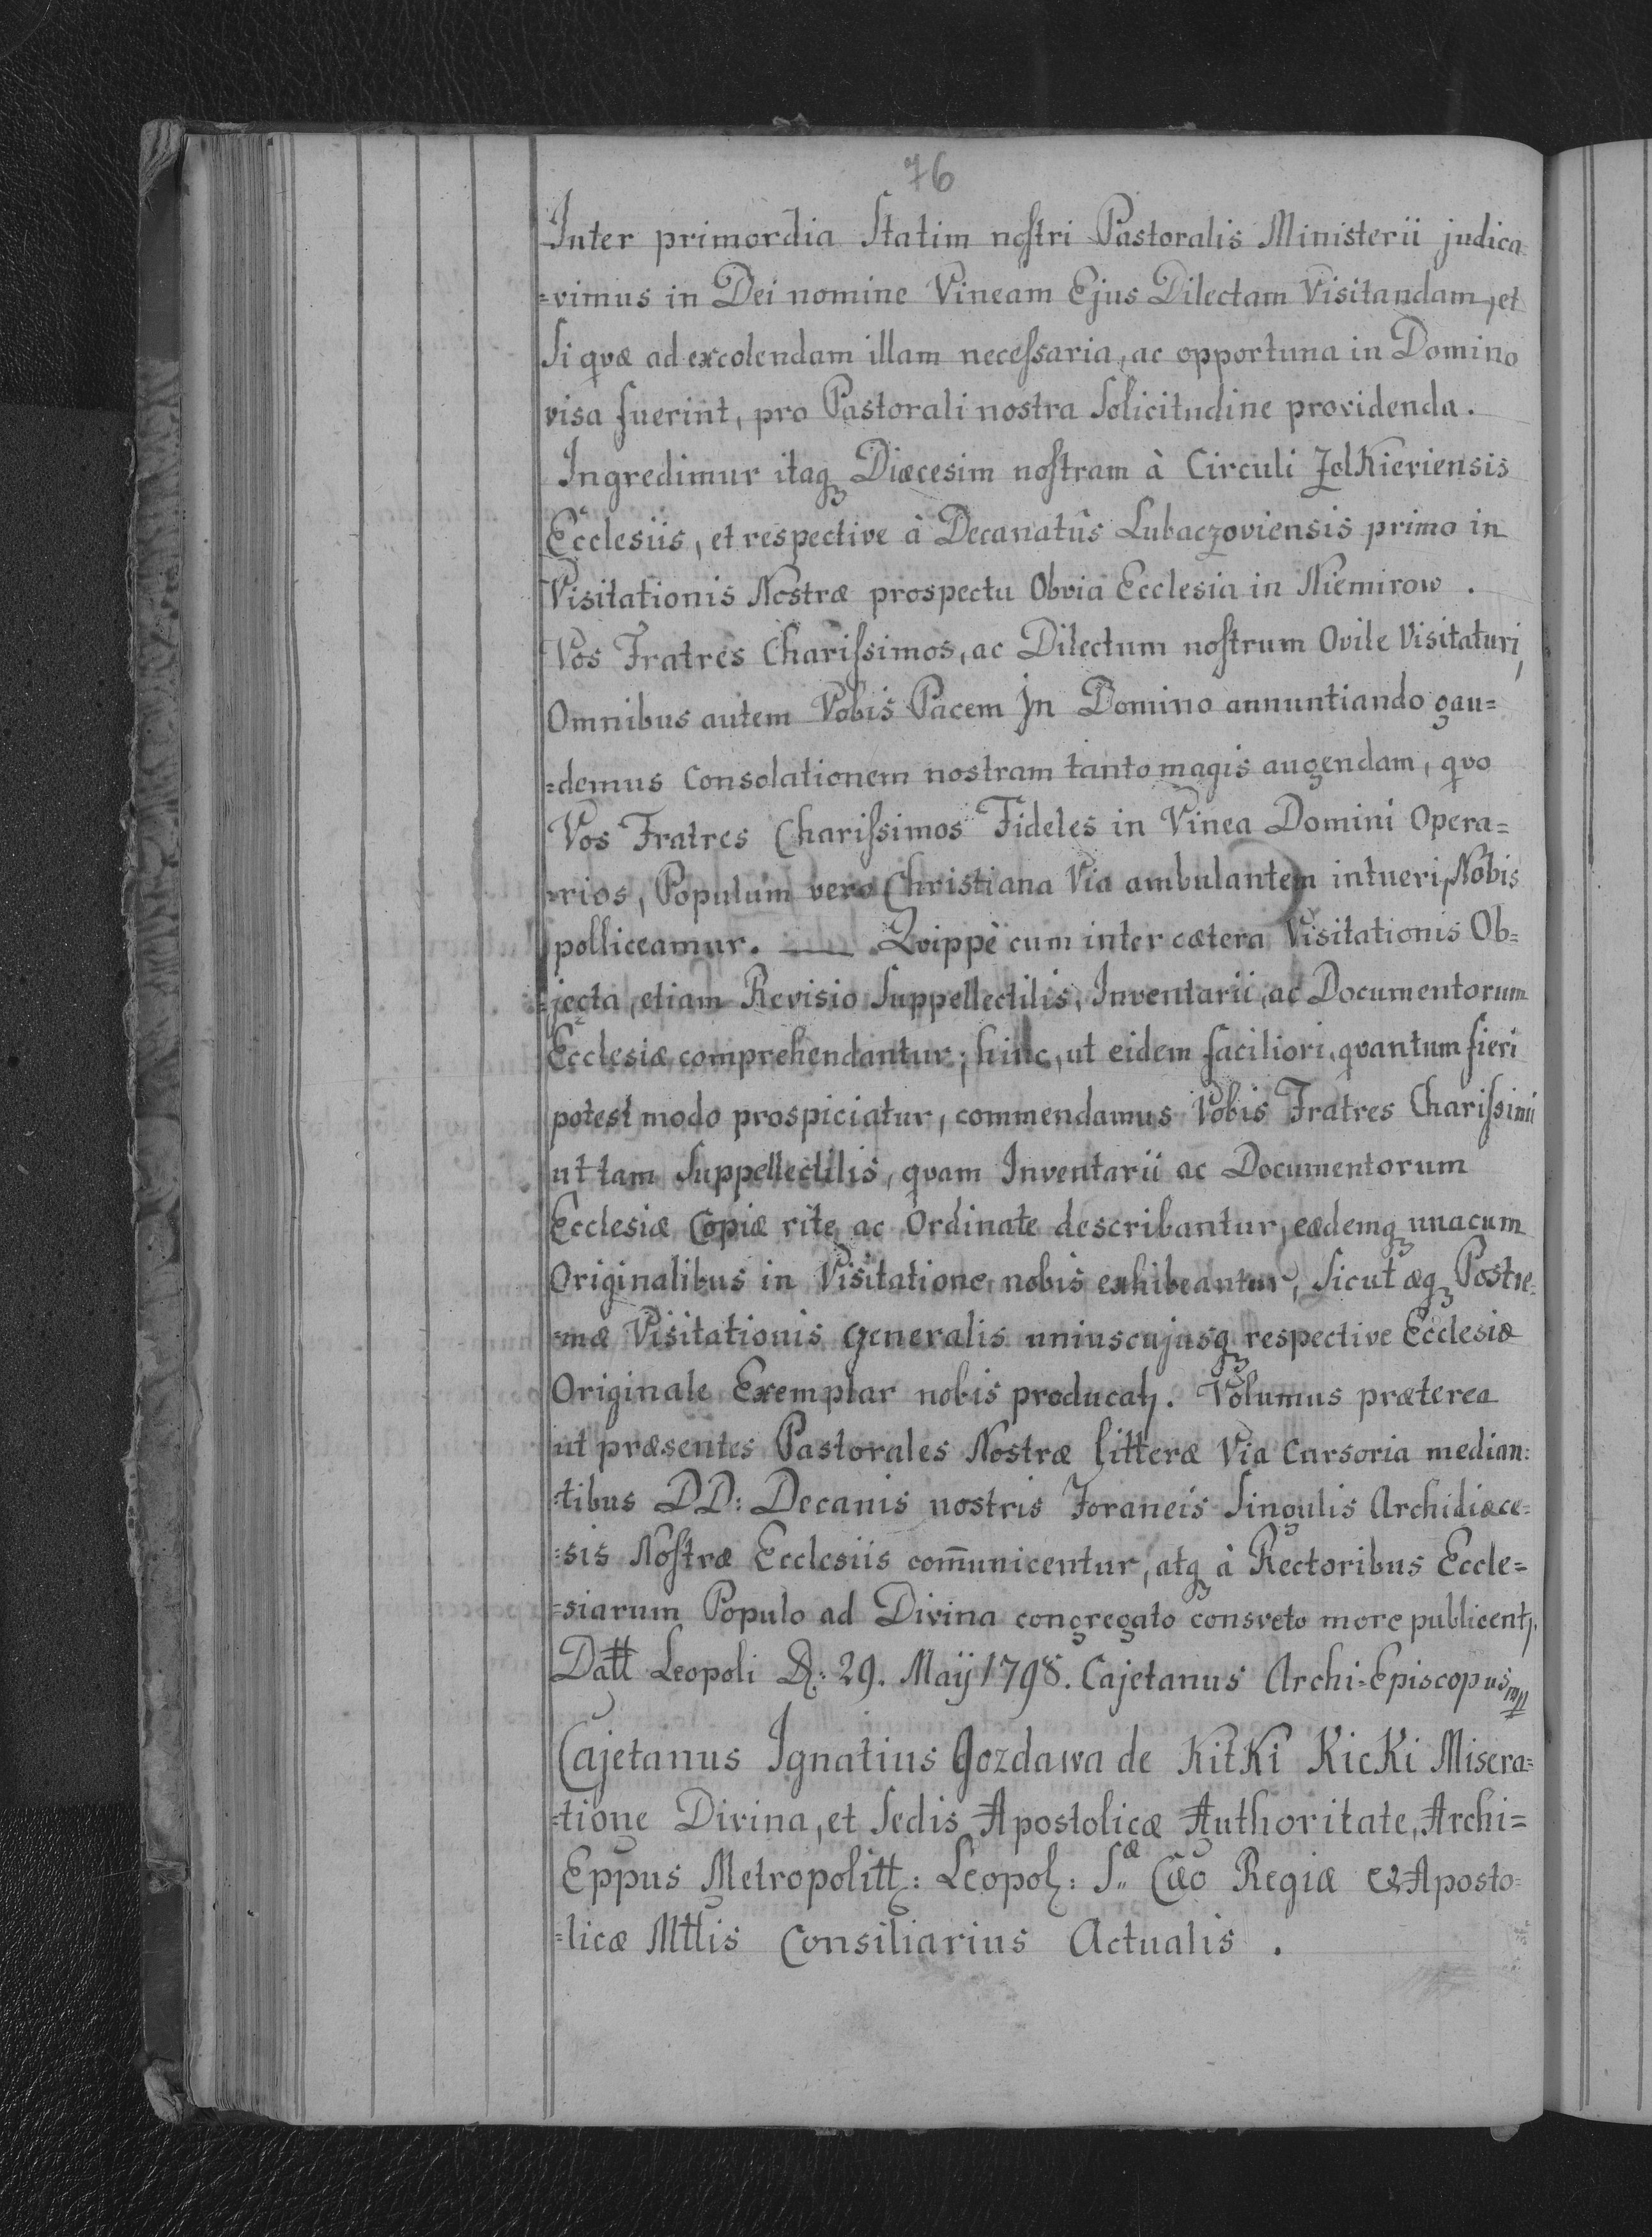 76
Inter primordia Statim nostri Pastoralis Ministerii judica=
=vimus in Dei nomine Vineam Ejus Dilectam Visitandam, et
Si qvæ ad excolendam illam necessaria, ac opportuna in Domino
visa fuerint, pro Pastorali nostra Solicitudine providenda.
Ingredimur itaqꝫ Diæcesim nostram à Circuli Zolkieviensis
Ecclesiis, et respective à Decanatûs Lubaczoviensis primo in
Visitationis Nostræ prospectu Obvia Ecclesia in Niemirow.
Vos Fratres Charissimos, ac Dilectum nostrum Ovile Visitaturi,
Omnibus autem Vobis Pacem In Domino annuntiando gau=
=demus Consolationem nostram tanto magis augendam, qvo
Vos Fratres Charissimos Fideles in Vinea Domini Opera=
=rios, Populum vero Christiana Via ambulantem intueri, Nobis
polliceamur. — Qvippè cum inter cætera Visitationis Ob=
=jecta, etiam Revisio Suppellectilis, Inventarii, ac Documentorum
Ecclesiæ comprehendantur; hinc, ut eidem faciliori, qvantum fieri
potest modo prospiciatur, commendamus Vobis Fratres Charissimi
ut tam Suppellectilis, qvam Inventarii ac Documentorum
Ecclesiæ Copiæ rite, ac Ordinate describantur, eædemqꝫ unacum
Originalibus in Visitatione nobis exhibeantur, Sicut æqꝫ Postre=
=mæ Visitationis Generalis uniuscujusqꝫ respective Ecclesiæ
Originale Exemplar nobis producatꝫ. Volumus præterea
ut præsentes Pastorales Nostræ Litteræ Via Cursoria median:
=tibus DD: Decanis nostris Foraneis Singulis Archidiæce=
=sis Nostræ Ecclesiis com̄unicentur, atqꝫ à Rectoribus Eccle=
=siarum Populo ad Divina congregato consveto more publicentꝫ.
Datt Leopoli D: 29. Maÿ 1798. Cajetanus Archi=Episcopus mp
Cajetanus Ignatius Gozdawa de Kitki Kicki Misera=
=tione Divina, et Sedis Apostolicæ Authoritate, Archi=
Eppus Metropolitt: Leopol: Sæ Cæo Regiæ & Aposto=
=licæ Mttis Consiliarius Actualis.